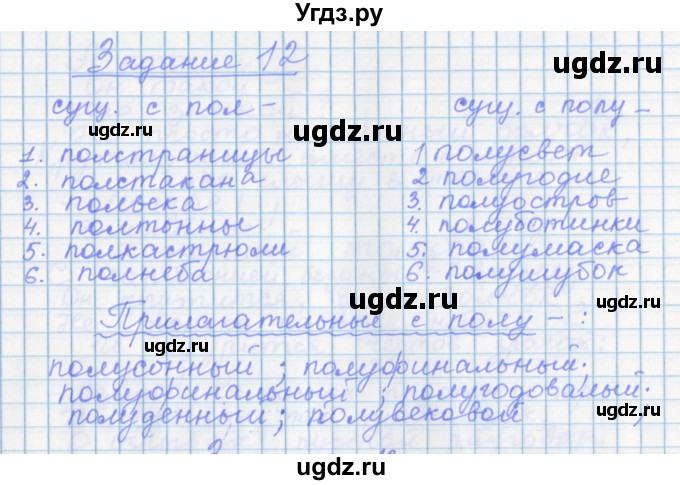 Угдз.ру
Задание 12
сущ. с пол-
сущ. с полу-
ugdz.ru
ugdz.ru
1. полстраницы
2. полстакана
3. польека
4. полтонны
5. полкастрюли
6. полнеба
1 полусвет
2 полугодие
3. полуостров
4. полуботинки
5. полумаска
6. полушубок
ugdz.ru
ugdz.ru
ugdz.ru
ugdz.ru
ugdz.ru
Прилагательные с полу-:
полусонный; полуфинальный.
полуфинальный; полугодовалый.
полуденный; полувековой
ugdz.ru
ugdz.ru
ugdz.ru
ugdz.ru